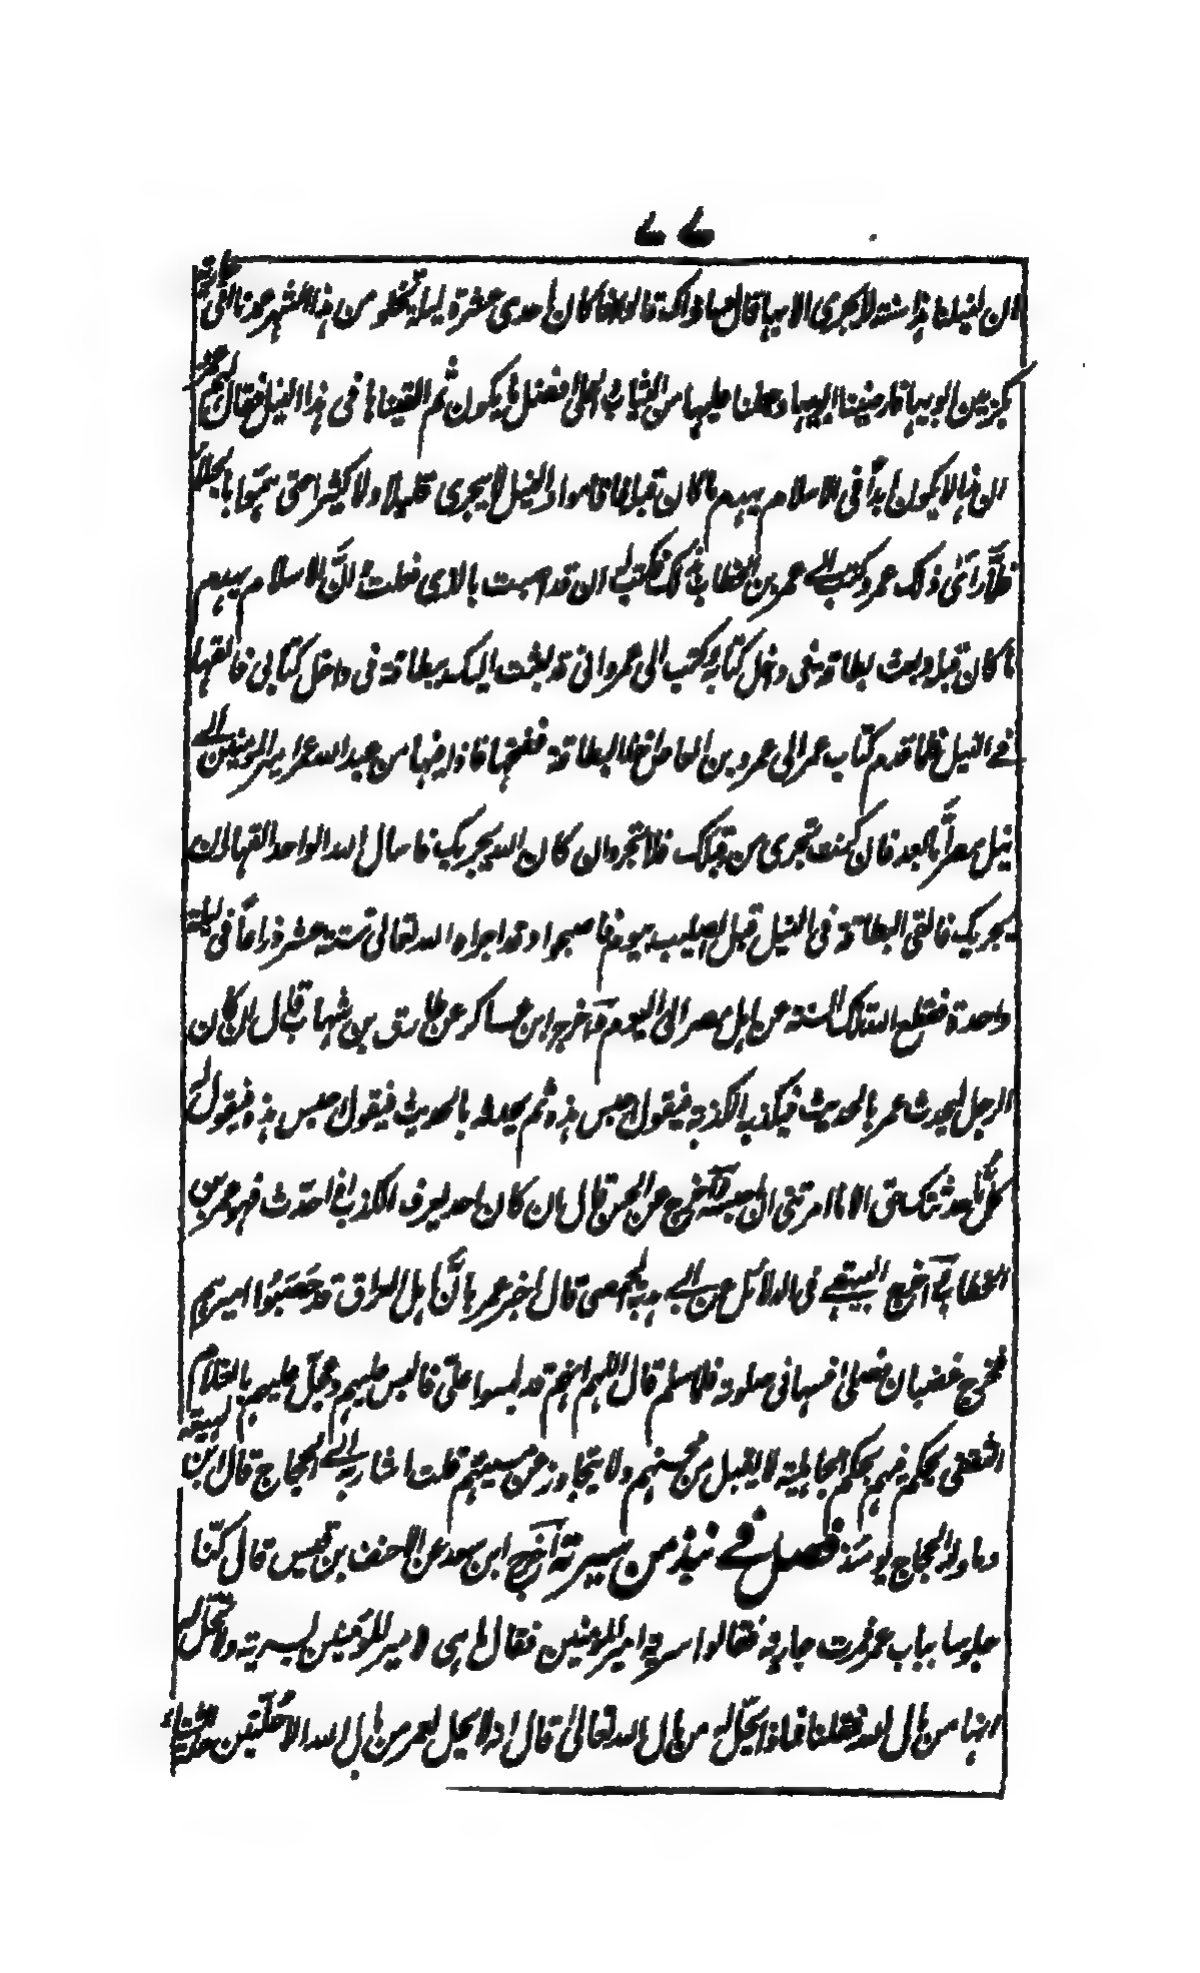 ٦٦
ان لنيلنا هذا سنة لا يجرى الا بها قال وما ذاك قالوا اذا كان احدى عشرة ليلة تخلو من هذا الشهر عمدنا الى جارية
بكر بين ابويها فارضينا ابويها وجعلنا عليها من الثياب والحلى افضل ما يكون ثم القيناها فى هذا النيل فقال لهم عمرو
ان هذا لا يكون ابداً فى الاسلام وان الاسلام يهدم ما كان قبله فاقاموا والنيل لا يجرى قليلا ولا كثيرا حتى هموا بالجلاء
فلمَّا رأى ذلك عمرو كتب الى عمر بن الخطاب بذلك فكتب له ان قد اصبت بالذى فعلت وانَّ الاسلام يهدم
ما كان قبله وبعث بطاقة فى داخل كتابه وكتب الى عمرو انى قد بعثت اليك ببطاقة فى داخل كتابى فالقها
فى النيل فلما قدم كتاب عمر الى عمرو بن العاص اخذ البطاقة ففتحها فاذا فيها من عبد الله عمر امير المومنين الى
نيل مصر اَمَّا بعد فان كنت تجرى من قبلك فلا تجر وان كان الله يجريك فاسأل الله الواحد القهار ان
يجريك فالقى البطاقة فى النيل قبل الصليب بيوم فاصبحوا وقد اجراه الله تعالى ستة عشر ذراعاً فى ليلة
واحدة فقطع الله تلك السنة عن اهل مصر الى اليوم واَخرج ابن عساكر عن طارق بن شهاب قال ان كان
الرجل ليحدث عمر بالحديث فيكذبه الكذبة فيقول احبس هذه ثم يحدثه بالحديث فيقول احبس هذه فيقول له
كُلُّ ما حدثتك حق الا ما امرتنى ان احبسه واَخرج عن الحسن قال ان كان احد يعرف الكذب اذا حدّث فهو عمر بن
الخطاب واَخرج البيهقى فى الدلائل عن ابى هدبة الحمصى قال اخبر عمر بانَّ اهل العراق قد حَصَبُوا اميرهم
فخرج غضبان فصلى فسها فى صلوته فلما سلم قال اللهم انهم قد لبسوا علىّ فالبس عليهم وعجّل عليهم بالغلام
الثقفى يحكم فيهم بحكم الجاهلية لا يقبل من محسنهم ولا يتجاوز عن مسيئهم قلت اشار به الى الحجاج قال ابن لهيعة
وما ولد الحجاج يومئذ فصل فى نبذ من سيرته اَخرج ابن سعد عن الاحنف بن قيس قال كنّا
جلوسا بباب عمر فمرت جارية فقالوا سرية امير المؤمنين فقال ما هى لامير المؤمنين بسرية ولا تحل له
انها من مال الله فقلنا فماذا يحلّ له من مال الله تعالى قال انه لا يحل لعمر من مال الله الا حُلّتين حلة للشتاء